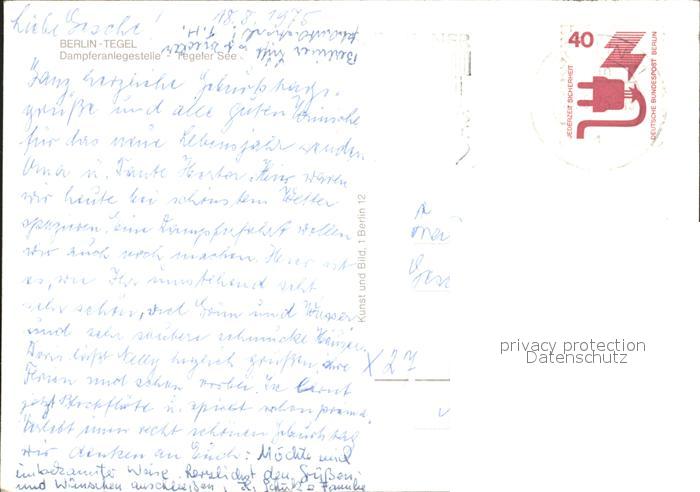 Liebe Gesche! 18.8.1975
BERLIN-TEGEL
Dampferanlegestelle - Tegeler See
Ganz herzliche Geburtstags-
grüße und alle guten Wünsche
für das neue Lebensjahr senden
Oma u. Tante Herta. Hier waren
wir heute bei schönstem Wetter
spazieren, eine Dampferfahrt wollen
wir auch noch machen. Hier ist
es, wie Ihr umstehend seht
sehr schön, viel Grün und Wasser
und sehr saubere schmucke Häuser.
läßt Nelly herzlich grüßen, ihre
Ferien sind schon vorbei. Sie lernt
jetzt Blockflöte u. spielt
Verlebt einen recht schönen Geburtstag
wir denken an Euch: Möchte mich
unbekannter Weise herzlichst den Grüßen
und Wünschen anschließen, Familie
Kunst und Bild, 1 Berlin 12
40
JEDERZEIT SICHERHEIT
DEUTSCHE BUNDESPOST BERLIN
X 27
privacy protection
Datenschutz